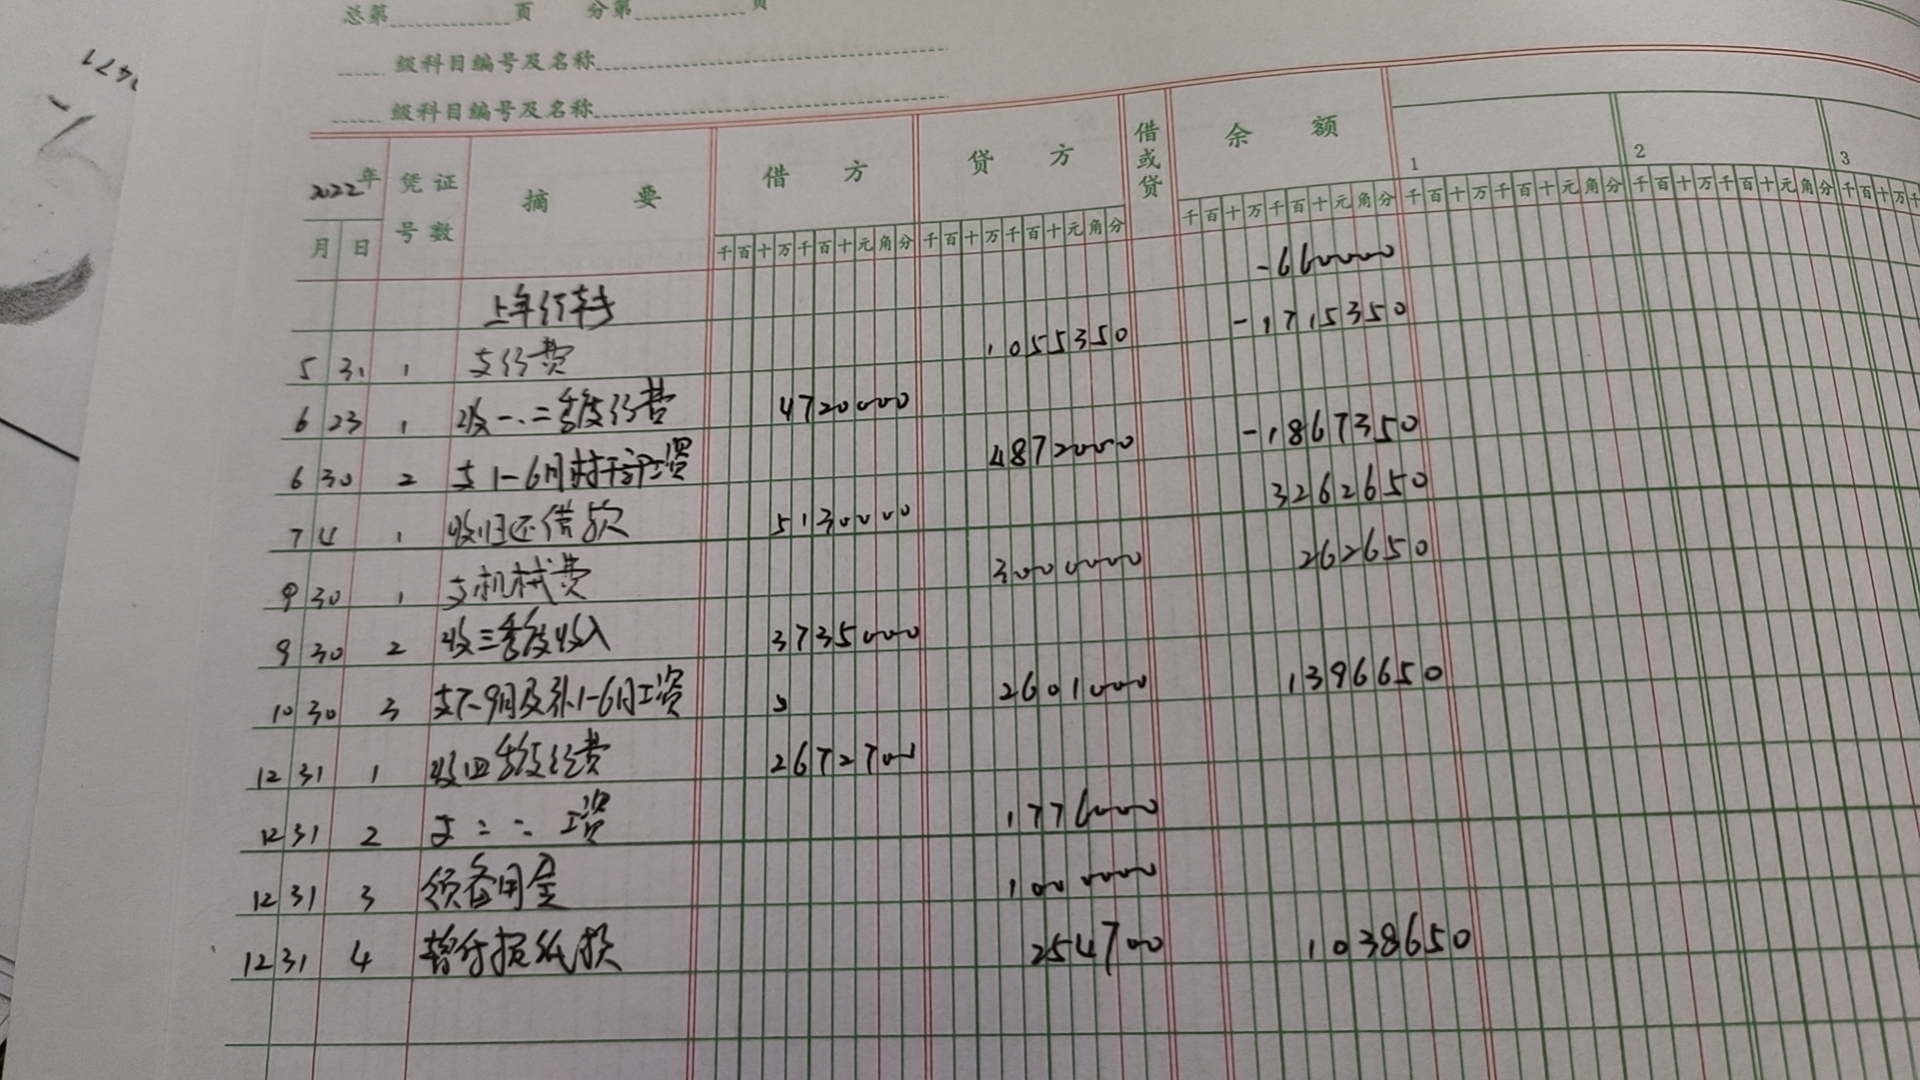 471
总第 页 分第 页
级科目编号及名称
级科目编号及名称
2022年 凭证号数 摘要 借方 贷方 借或贷 余额 1 2 3
月 日 千百十万千百十元角分 千百十万千百十元角分 千百十万千百十元角分 千百十万千百十元角分 千百十万千百十元角分 千百十万千
上年结转 -660000
5 31 1 支经费 1055350 -1715350
6 23 1 收一.二季度经费 4720000
6 30 2 支1-6月村干部工资 4872000 -1867350
7 4 1 收归还借款 5130000 3262650
9 30 1 支机械费 3000000 262650
9 30 2 收三季度收入 3735000
10 30 3 支7-9月及补1-6月工资 2601000 1396650
12 31 1 收四季度经费 2672700
12 31 2 支 〃 〃 工资 1776000
12 31 3 领备用金 1000000
12 31 4 暂付报纸款 254700 1038650